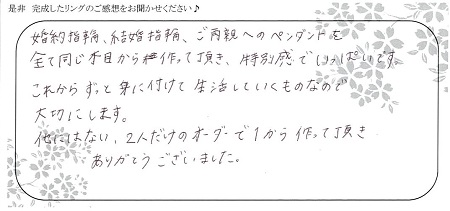 是非 完成したリングのご感想をお聞かせください♪
婚約指輪、結婚指輪、ご両親へのペンダントを
全て同じ木目から作って頂き、特別感でいっぱいです。
これからずっと身に付けて生活していくものなので
大切にします。
他にはない、2人だけのオーダーで1から作って頂き
ありがとうございました。